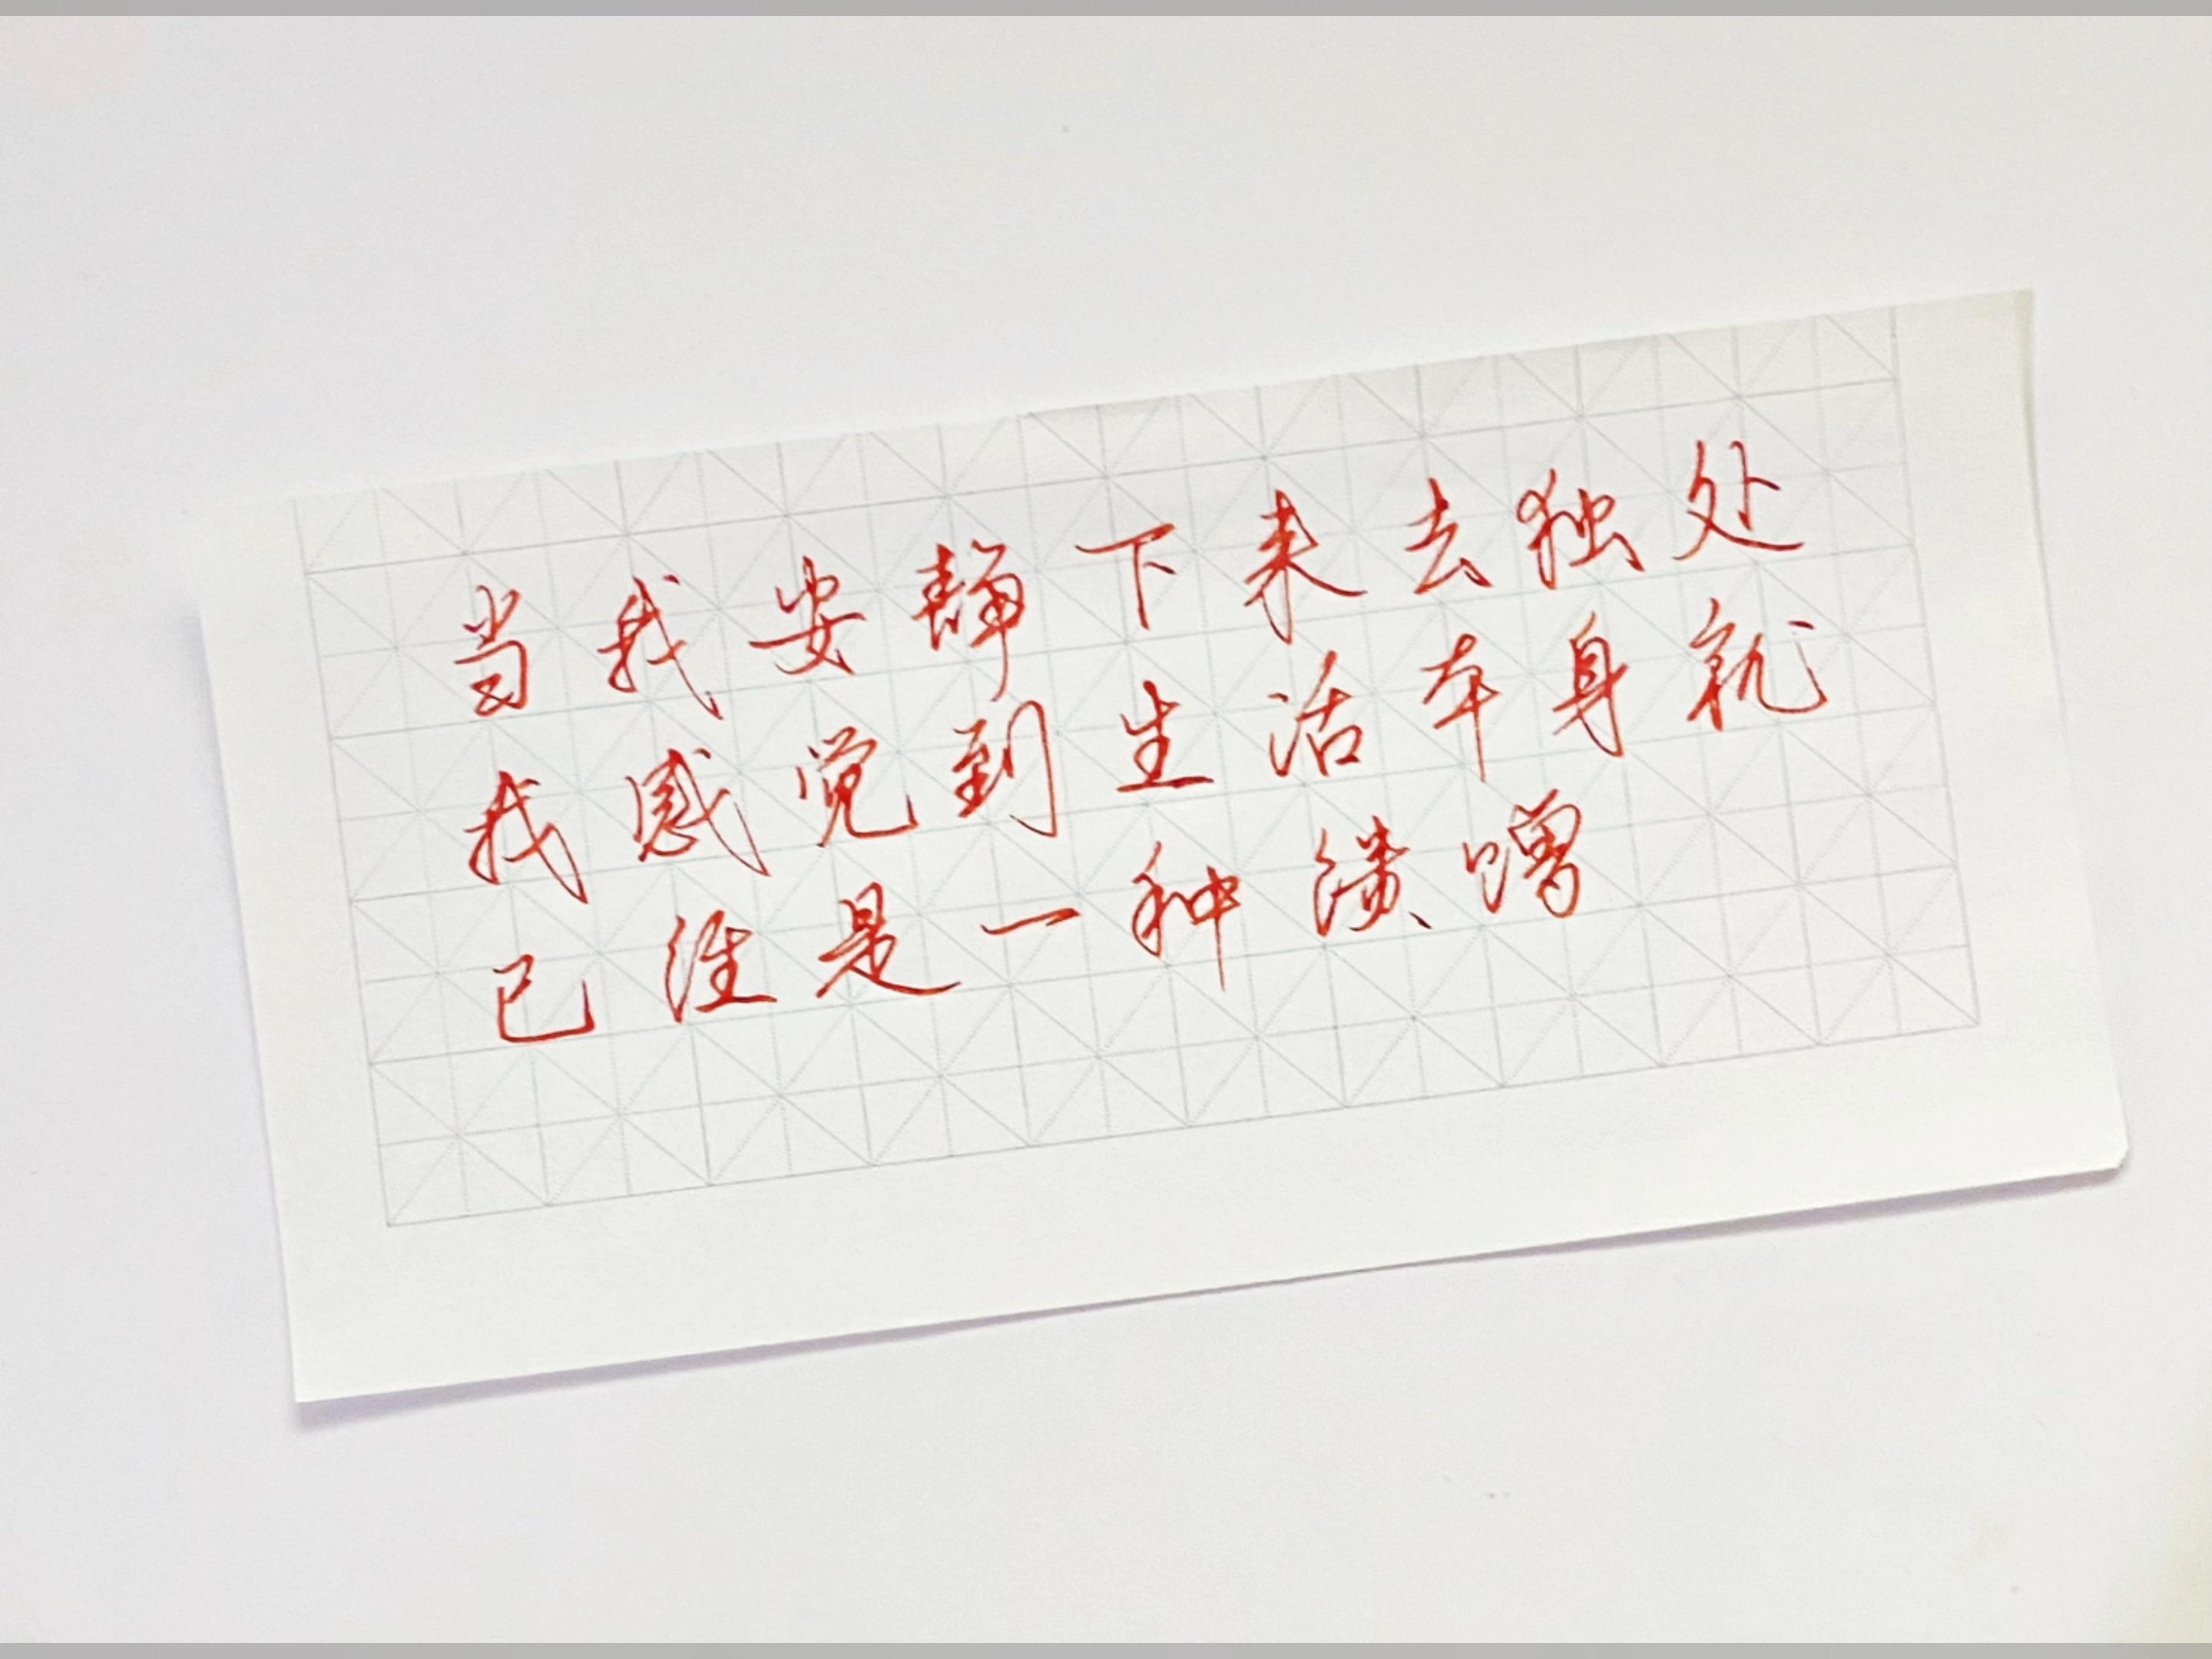 当我安静下来去独处
我感觉到生活本身就
已经是一种馈赠